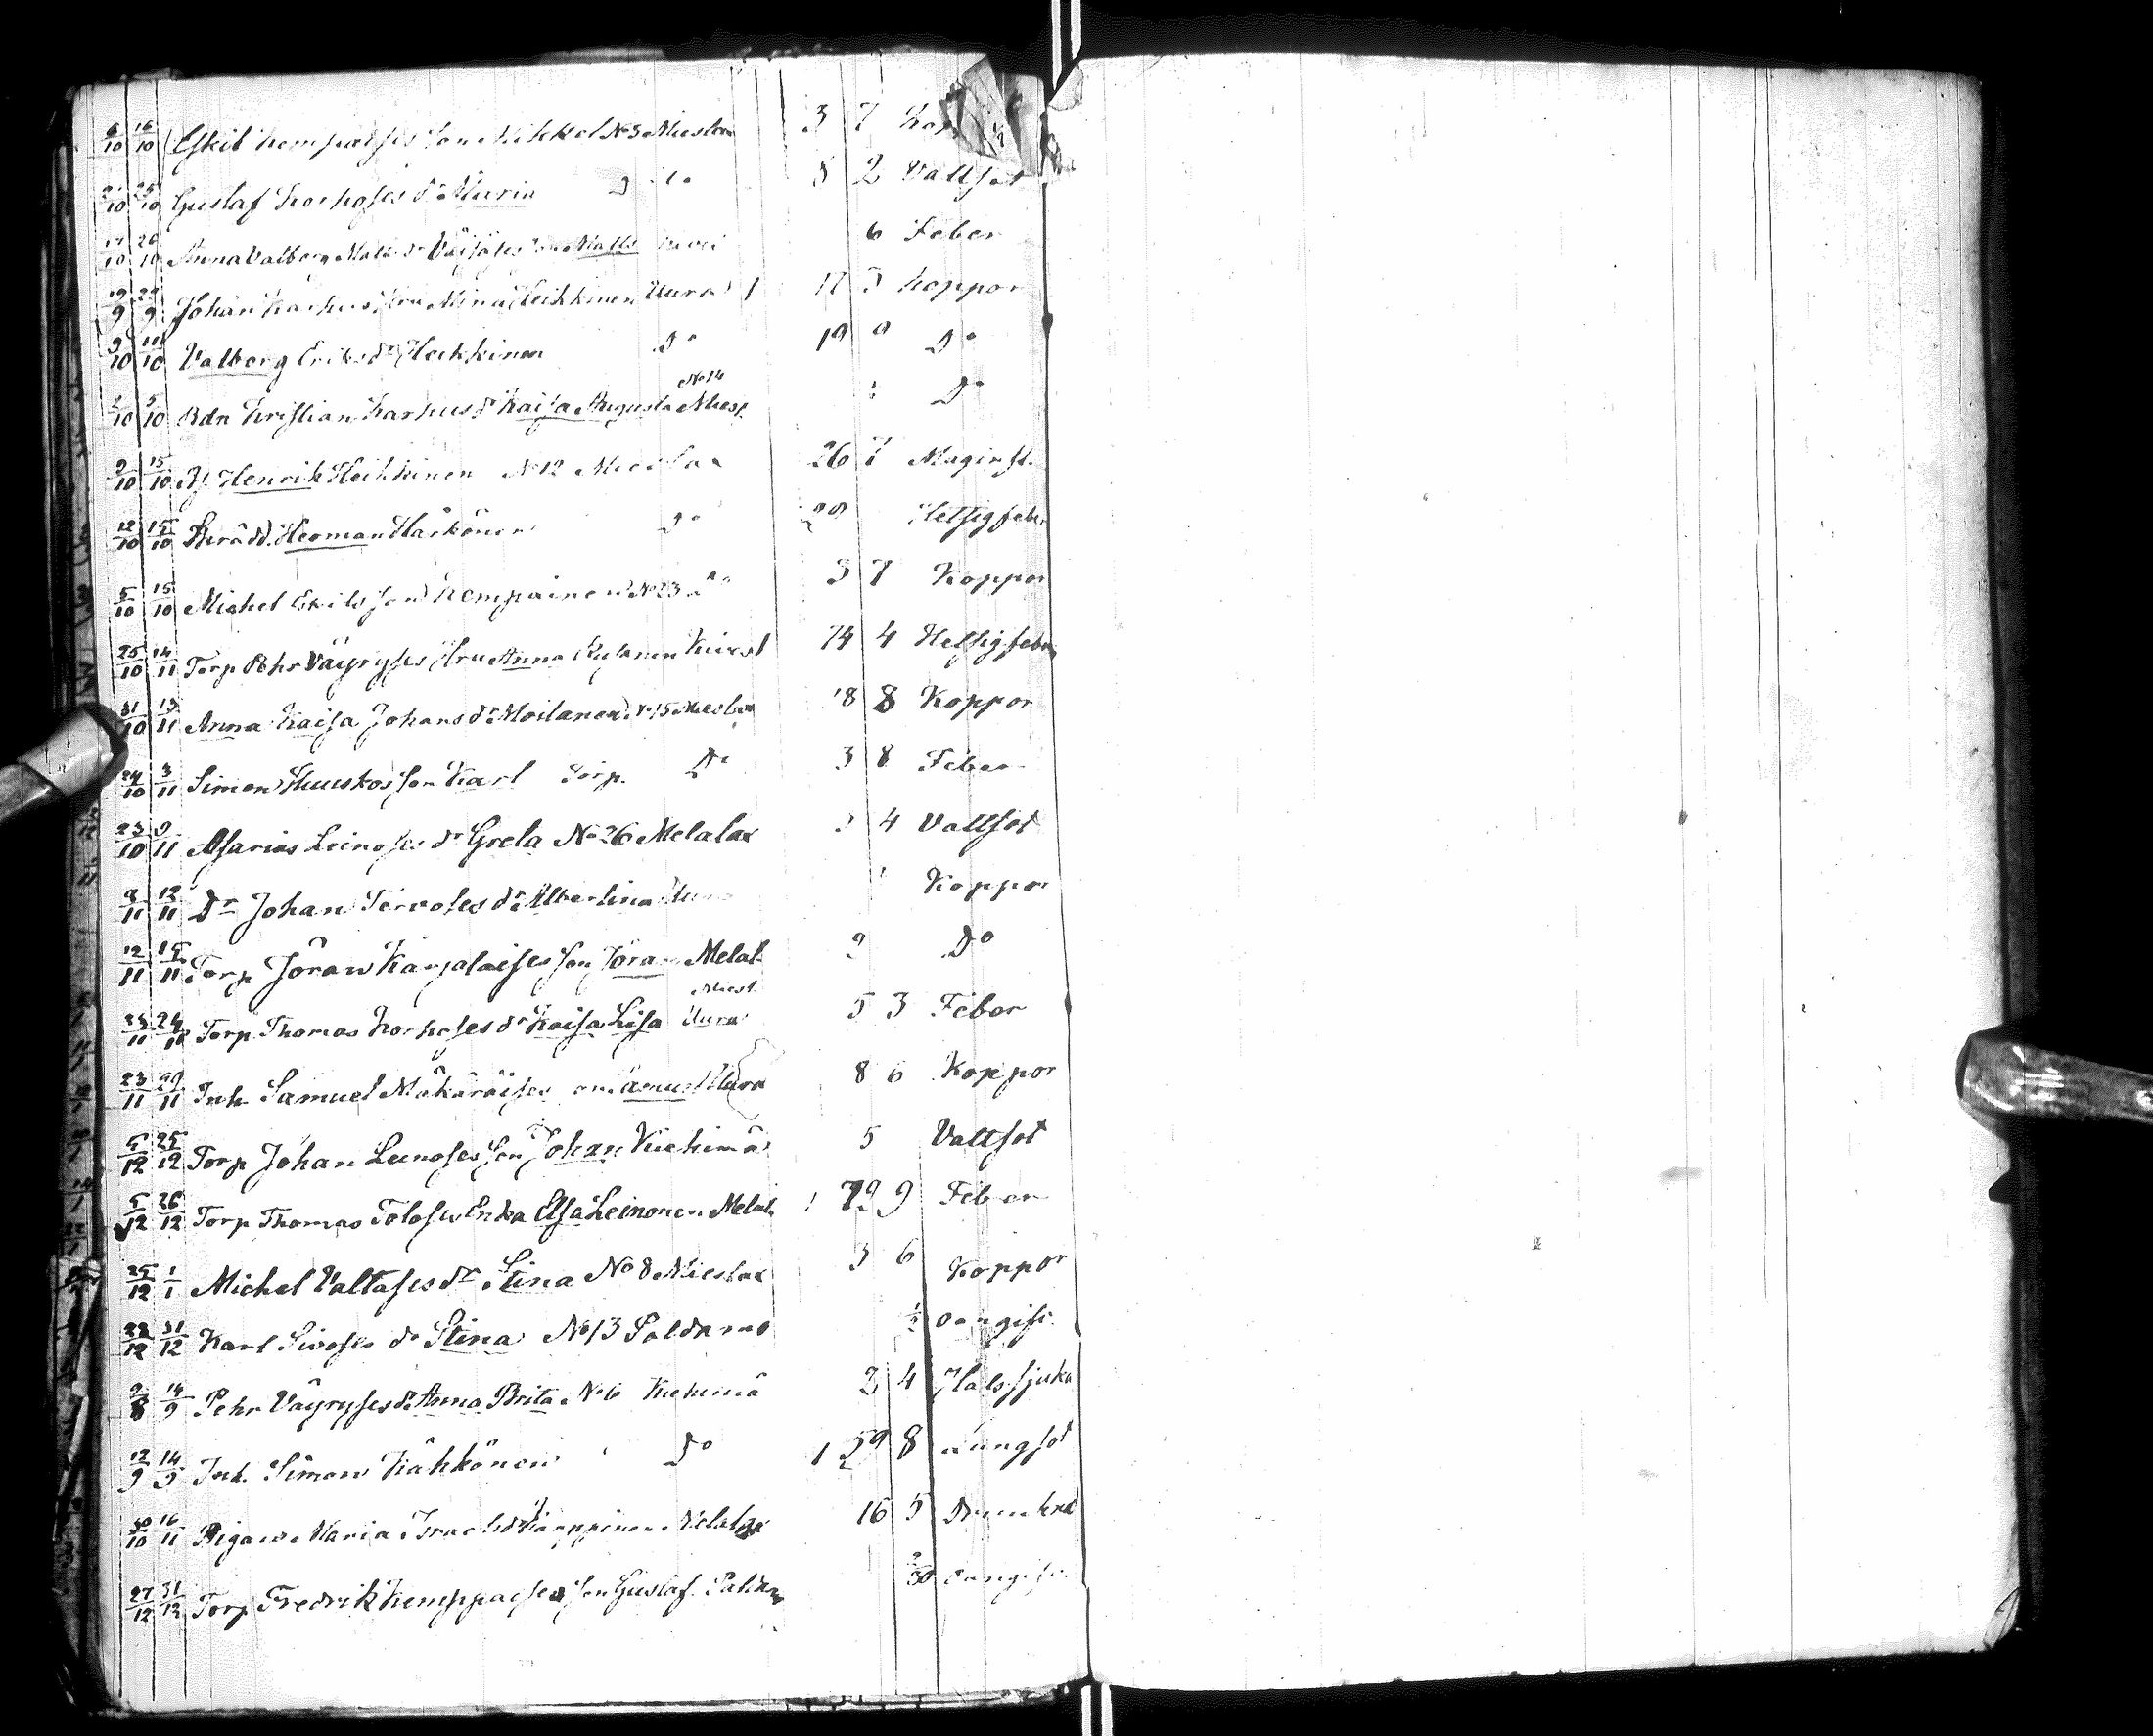 6/10 16/10 Eskil Kempaises son Mikkel No 3 Mieslax 3 7 Kop
25/10 Gustaf Korhoses dr Maria Dito 8 2 Vattsot
17/10 26/10 Anna Valborg Matts dr Väisäses son Matts 6 Feber
19/9 29/9 Johan Karhus hru Mina Heikkinen Uura 1 17 3 Koppor
9/10 11/10 Valborg Eriks dr Heikkinen Do 19 9 Do
2/10 5/10 Bdn Kristian Karhus dr Kaisa Augusta No 14 Miesl Do
9/10 15/10 Henrik Heikkinen No 12 Mieslax 26 7 Maginfl.
12/10 15/10 Herman Härkönen Do Hetsigfeber
5/10 15/10 Michel Eskils son Kempainen No 23 Do 3 7 Koppor
25/10 14/11 Torp Pehr Väyryses Hru Anna Rysänen Miesl 74 4 Hetsigfeber
31/10 13/11 Anna Kaisa Johans dr Moilanen No 15 Mieslax 18 8 Koppor
24/10 3/11 Simon Huuskos son Karl Torp. Do 3 8 Feber
23/10 9/11 Asarias Leinoses dr Greta No 26 Melalax 4 Vattsot
9/11 12/11 Dr Johan Tervoses dr Albertina Koppor
12/11 15/11 Torp Jöran Karjalaises son Jöran Melal. 9 Do
Torp Thomas Korhoses dr Kaisa Lisa Miesl Uura 5 3 Feber
23/11 29/11 Inh. Samuel Mäkäräises son Samuel Uura 8 6 Koppor
5/12 25/12 Torp Johan Leinoses son Johan Kiehimä 5 Vattsot
5/12 26/12 Torp Thomas Toloses Enka Elsa Leinonen Melal. 1 79 9 Feber
25/12 1/1 Michel Valtases dr Stina No 8 Mieslax 3 6 Koppor
28/12 31/12 Karl Sivoses dr Stina No 13 Paldamo 1/2 oangifv.
9/8 14/9 Pehr Väyryses dr Anna Brita No 6 Kiehimä 2 4 Halssjuka
12/9 14/9 Inh. Simon Kähkönen Do 1 59 8 Lungsot
30/10 16/11 Pigan Maria Israels dr Karppinen Melalax 16 5 Drunknat
27/12 31/12 Torp Fredrik Kemppaises son Gustaf Paldamo 2/30 oangifv.